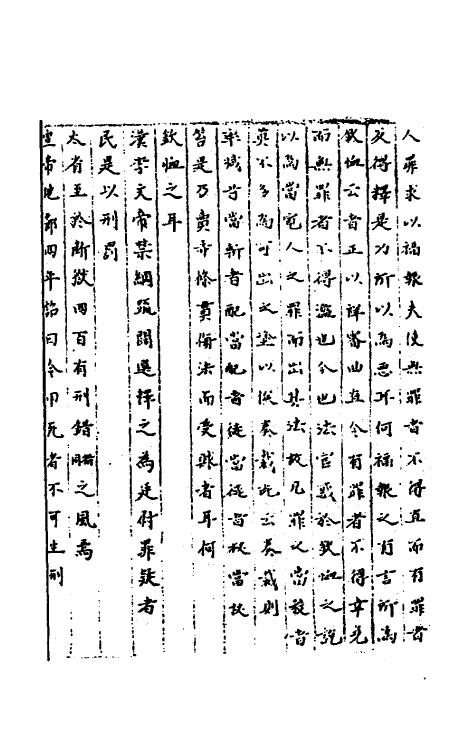 人罪求以福報夫使無罪者不得直而有罪者
反得釋是乃所以為惡耳何福報之有言所為
欽恤云者正以詳審曲直令有罪者不得幸免
而無罪者不得濫也今也法官惑於欽恤之說
以為當寬人之罪而出其法故凡罪之當殺者
莫不多為可出之塗以俟奏裁既云奏裁則
率減等當斬者配當配者徒當徒者杖當杖
笞是乃賣弄條貫侮法而受賕者耳何
欽恤之有
漢孝文帝禁網疏闊選張釋之為廷尉罪疑者
民是以刑罰
太省至於斷獄四百有刑錯之風焉
宣帝地節四年詔曰令甲死者不可生刑